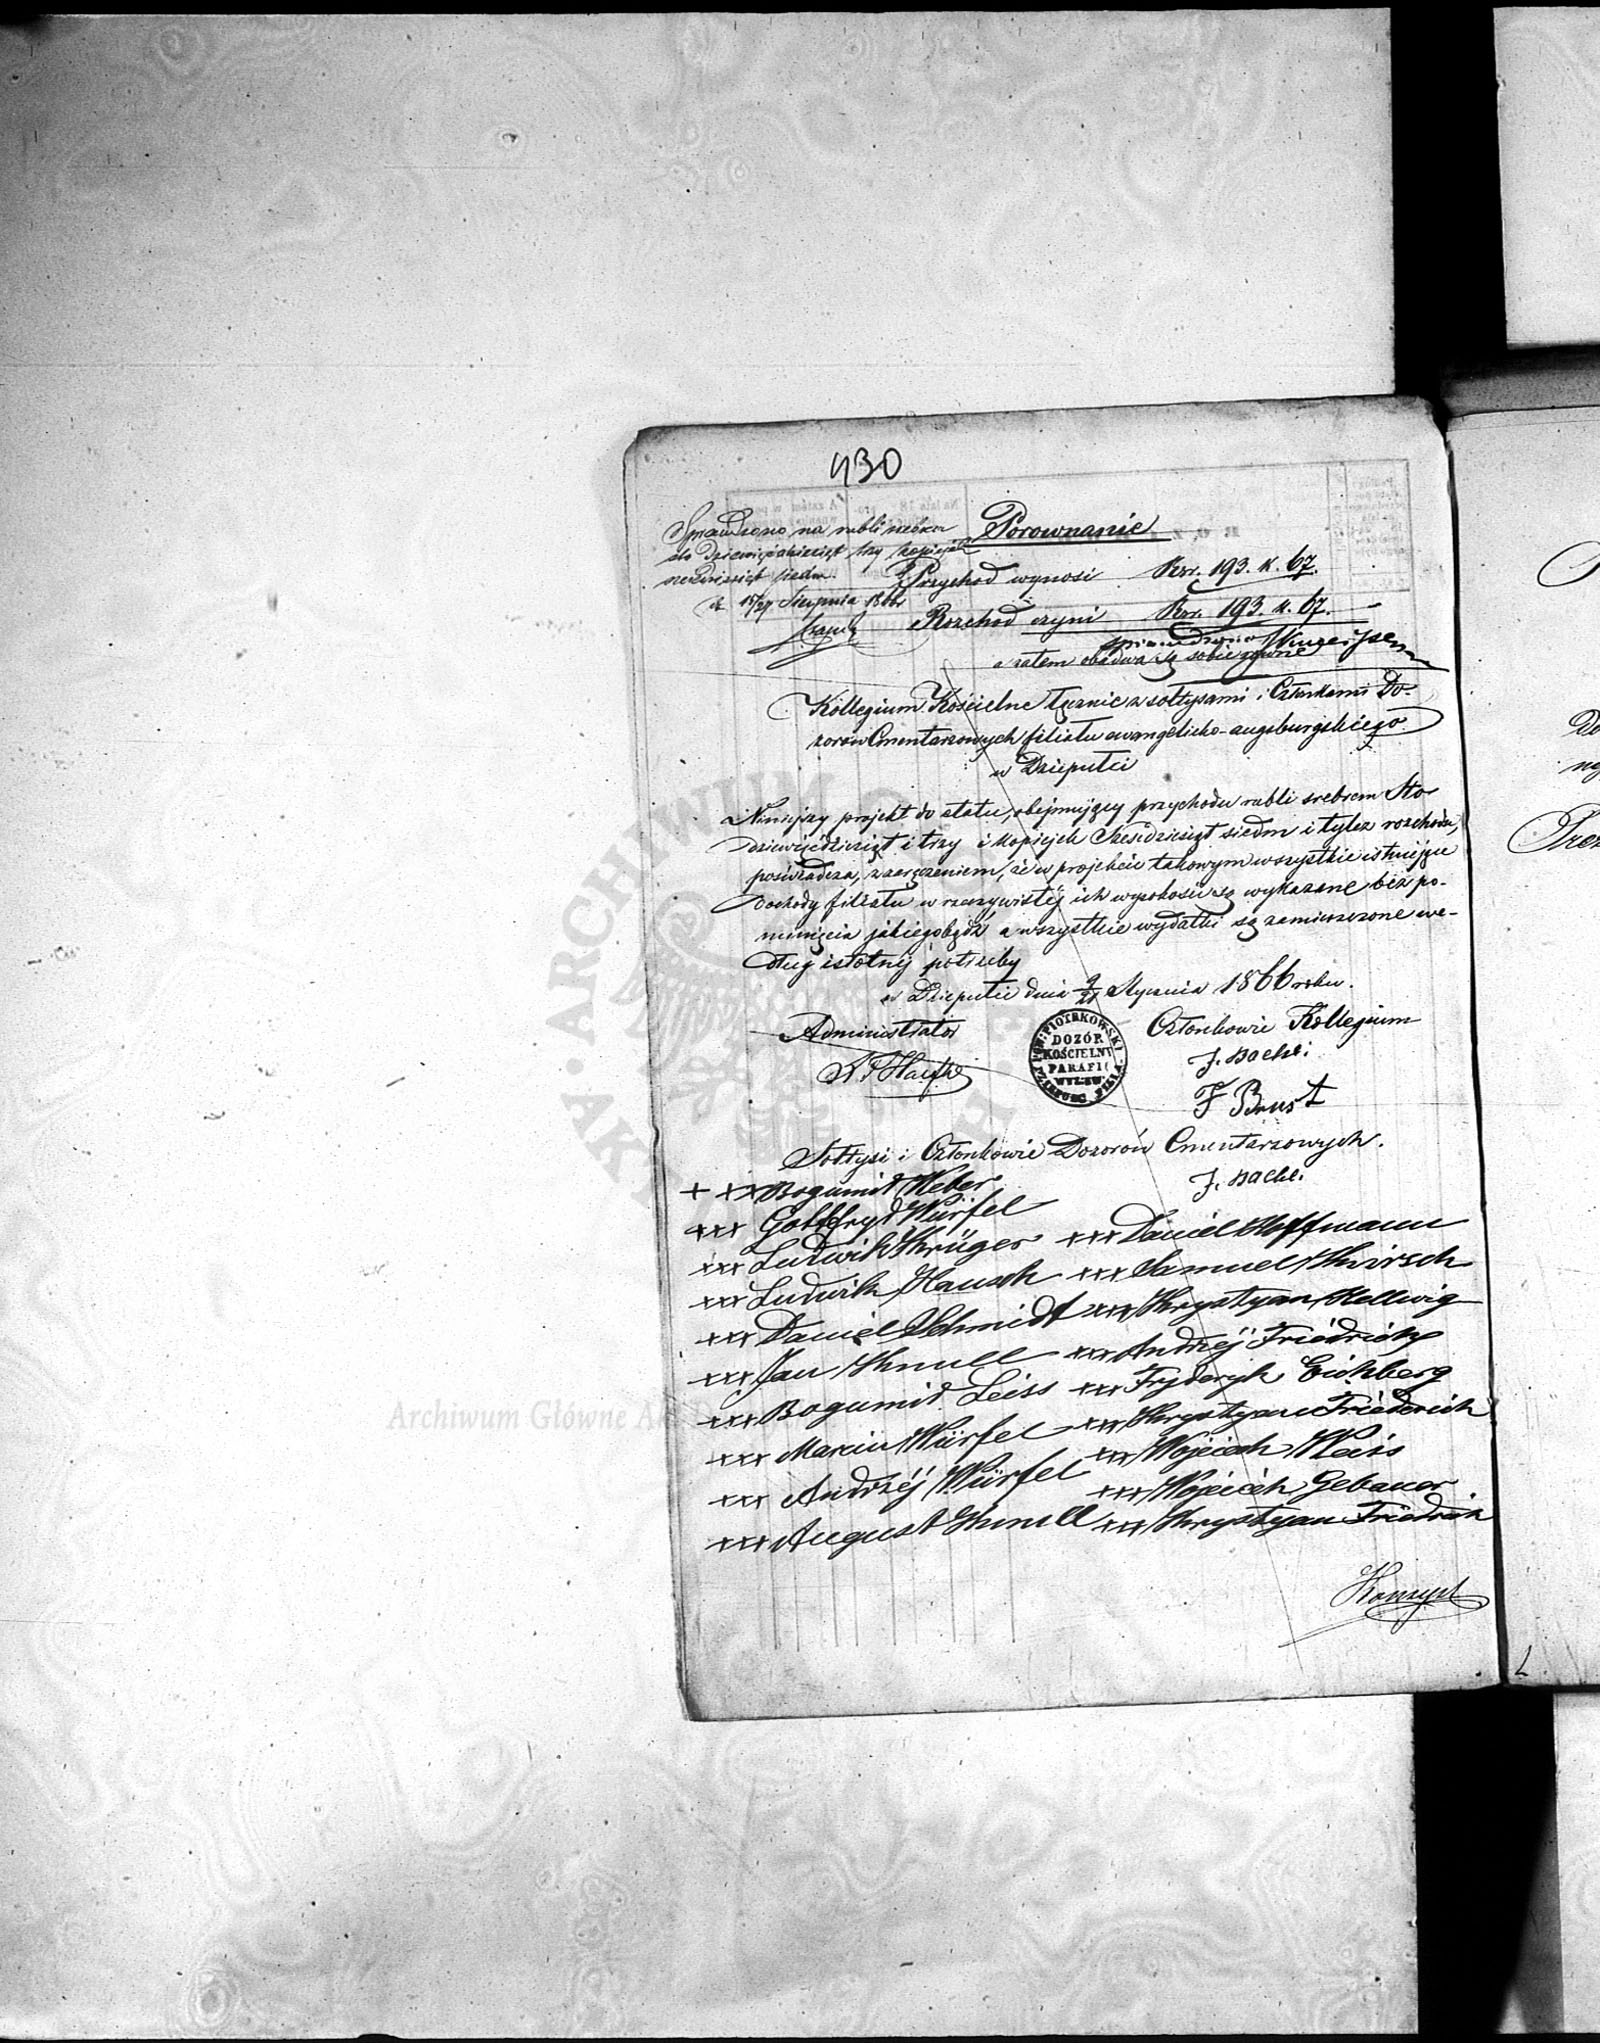 430
Sprawdzono na rubli srebrem
sto dziewięćdziesiąt trzy kopiejek
sześćdziesiąt siedm.
d. 15/27 Sierpnia 1866
Porownanie
Przychod wynosi Rsr. 193. k. 67.
Rozchod czyni Rsr. 193. k. 67.
a zatem obadwa są sobie równe
Kollegium Kościelne łącznie z sołtysami i Członkami Do-
zorów Cmentarzowych filiału ewangelicko-augsburgskiego
w Dziepulci
Niniejszy projekt do etatu, obejmujący przychodu rubli srebrem Sto
dziewięćdziesiąt i trzy i kopiejek Sześdziesiąt siedm i tyleż rozchodu,
poświadcza, z zaręczeniem, że w projekcie takowym wszystkie istniejące
dochody filiału w rzeczywistéj ich wysokości są wykazane bez po-
minięcia jakiegobądź a wszystkie wydatki są zamieszczone we-
dług istotnéj potrzeby
w Dziepulci dnia 9/21 Stycznia 1866 roku.
Administrator
Członkowie Kollegium
J. Bache:
F Brust
PIOTRKOWSKI
DOZÓR
KOŚCIELNY
PARAFII
Sołtysi i Członkowie Dozorów Cmentarzowych.
J. Bache.
+ xx Bogumił Weber
xxx Gottfryd Würfel
xxx Ludwik Krüger xxx Daniel Hoffmann
xxx Ludwik Hausch xxx Samuel Khirsch
xxx Daniel Schmidt xxx Krystyan Hellwig
xxx Jan Knull xxx Andrzéj Friedrich
xxx Bogumił Leiss xxx Fryderyk Eichberg
xxx Marcin Würfel xxx Krystyan Friederich
xxx Andrzéj Würfel xxx Wojciech Weiss
xxx August Knull xxx Wojciéch Gebauer
xxx Krystyan Friedrich
ARCHIWUM
AKT
Archiwum Główne Ak